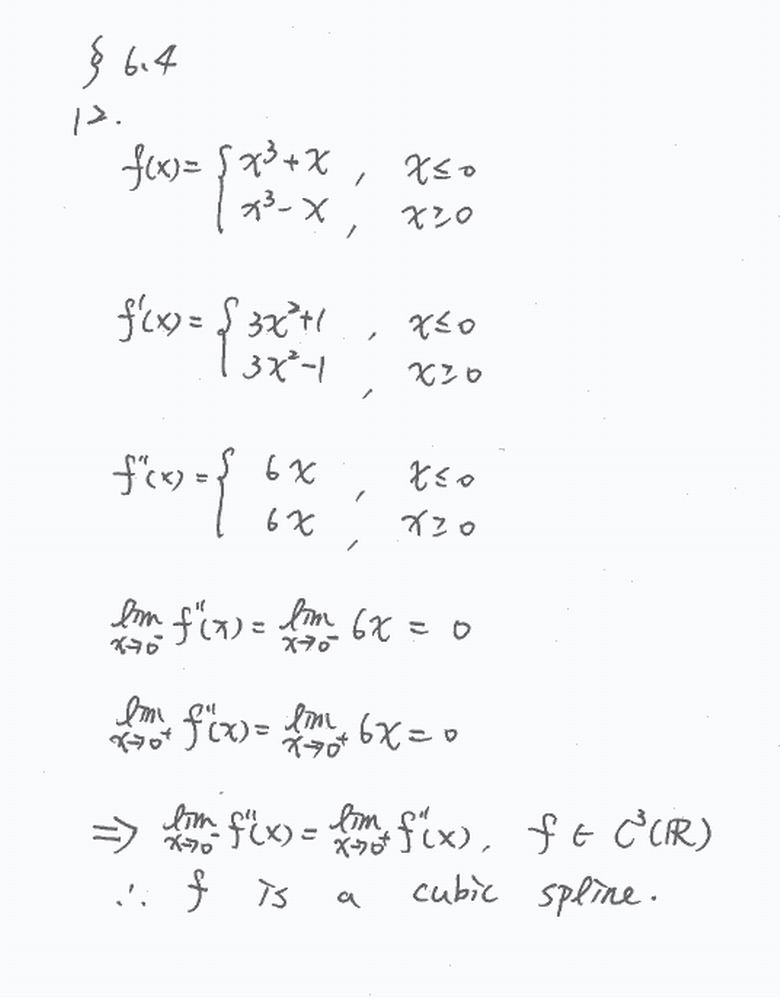 § 6.4
12.
f(x) = { x³ + x , x ≤ 0
x³ - x , x ≥ 0
f'(x) = { 3x²+1 , x ≤ 0
3x²-1 , x ≥ 0
f''(x) = { 6x , x ≤ 0
6x , x ≥ 0
lim x→0⁻ f''(x) = lim x→0⁻ 6x = 0
lim x→0⁺ f''(x) = lim x→0⁺ 6x = 0
⇒ lim x→0⁻ f''(x) = lim x→0⁺ f''(x), f ∈ C³(ℝ)
∴ f is a cubic spline.